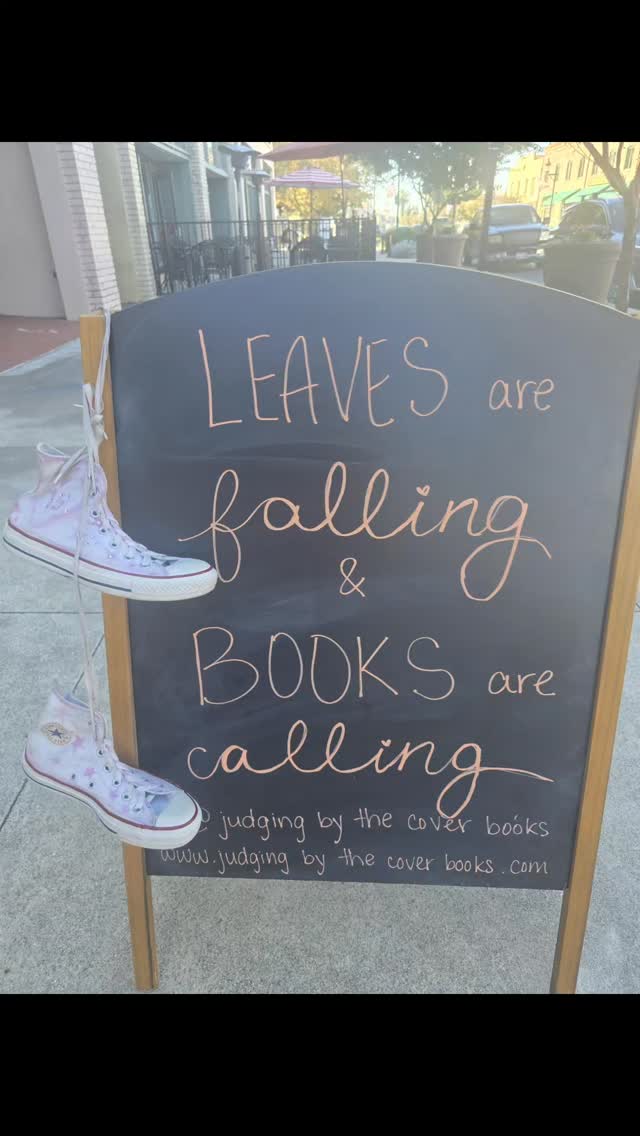 LEAVES are
falling
&
BOOKS are
calling
@ judging by the cover books
www.judging by the cover books.com